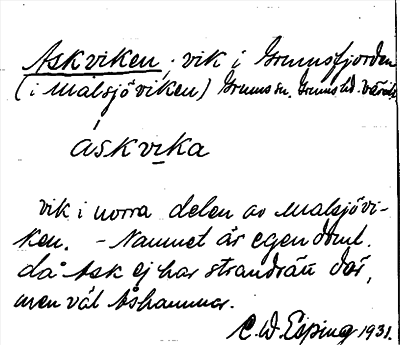 Askviken, vik i Grumsfjorden
(i Målsjöviken) Grums sn. Grums hd. Värml.
áskvika
vik i norra delen av Malsjövi-
ken. - Namnet är egendoml.
då Ask ej har strandrätt där,
men väl Åshammar.
C. W. Esping 1931.